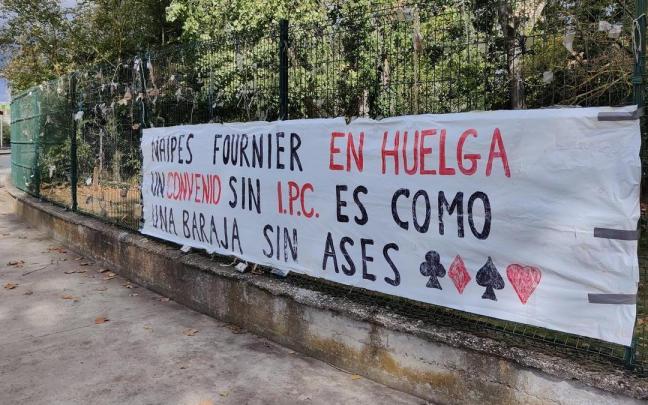 NAIPES FOURNIER EN HUELGA
UN CONVENIO SIN I.P.C. ES COMO
UNA BARAJA SIN ASES